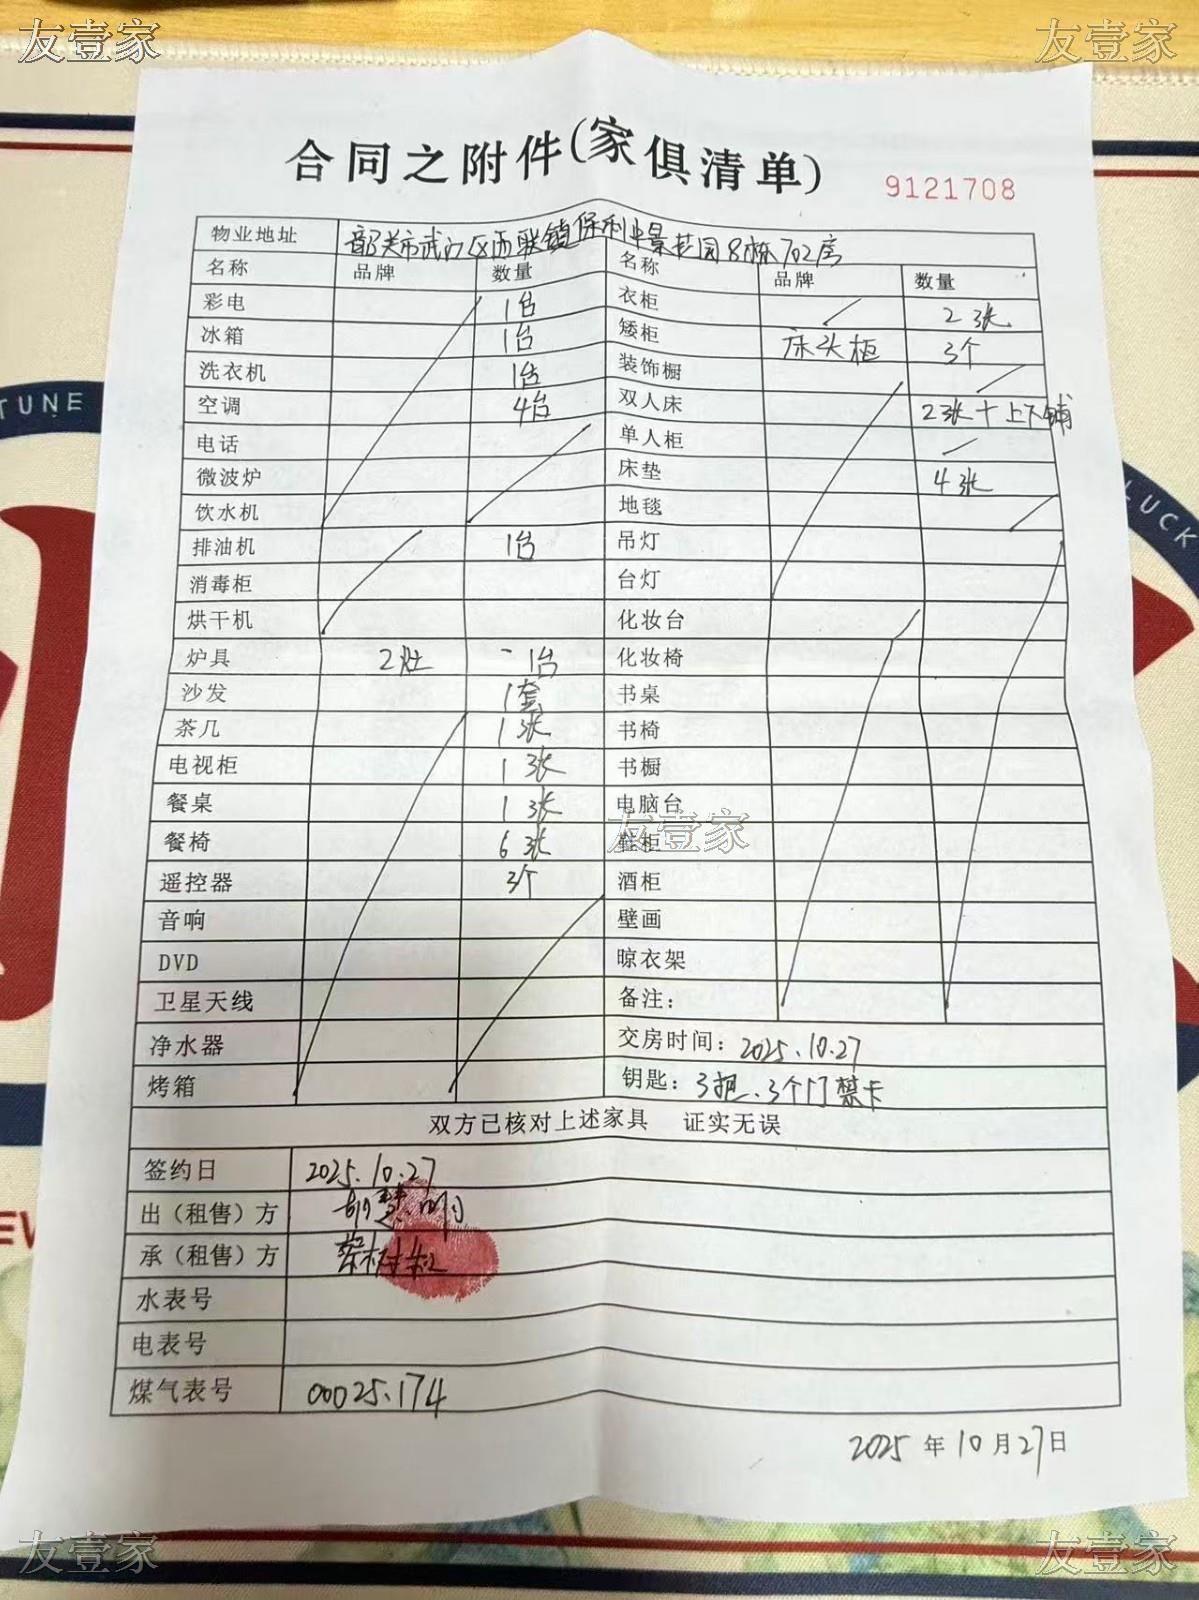 友壹家 友壹家
合同之附件(家俱清单)
9121708
物业地址 韶关市武江区西联镇保利中景花园8栋702房
名称 品牌 数量 名称 品牌 数量
彩电 1台 衣柜 2张
冰箱 1台 矮柜 床头柜 3个
洗衣机 1台 装饰橱
空调 4台 双人床 2张+上下铺
电话 单人柜
微波炉 床垫 4张
饮水机 地毯
排油机 1台 吊灯
消毒柜 台灯
烘干机 化妆台
炉具 2灶 1台 化妆椅
沙发 1套 书桌
茶几 1张 书椅
电视柜 1张 书橱
餐桌 1张 电脑台
友壹家
餐椅 6张 鞋柜
遥控器 3个 酒柜
音响 壁画
DVD 晾衣架
卫星天线 备注:
净水器 交房时间: 2025.10.27
烤箱 钥匙: 3把、3个门禁卡
双方已核对上述家具 证实无误
签约日 2025.10.27
出(租售)方
承(租售)方
水表号
电表号
煤气表号 00025.174
2025年10月27日
友壹家 友壹家
TUNE
LUCK
EW